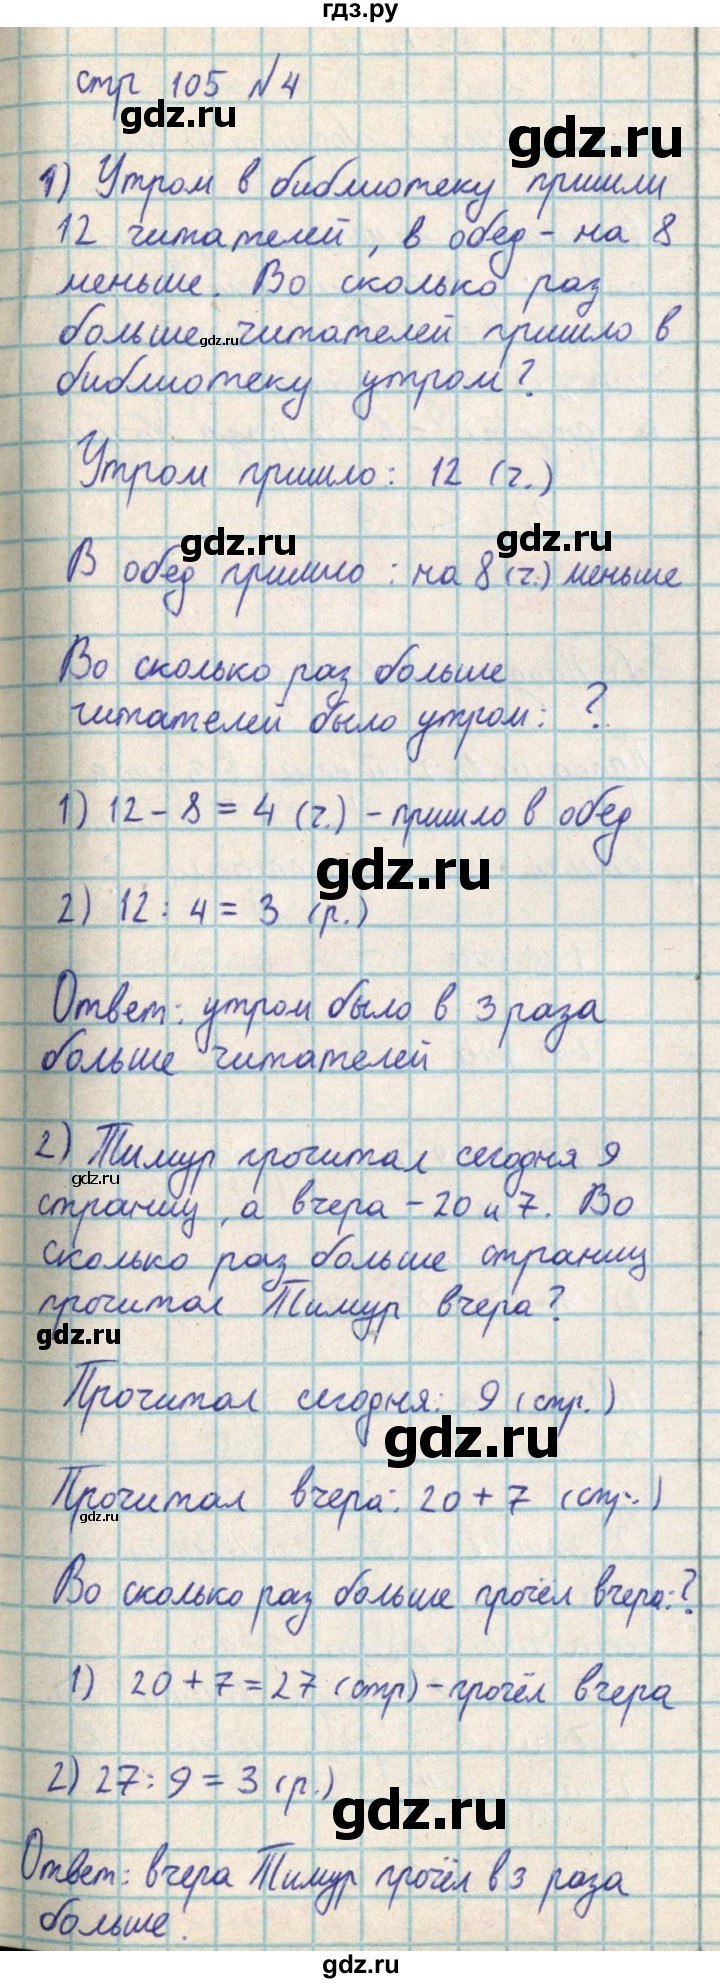 гдз.ру
стр 105 №4
gdz.ru
gdz.ru
1) Утром в библиотеку пришли
12 читателей, в обед - на 8
меньше. Во сколько раз
больше читателей пришло в
gdz.ru
библиотеку утром?
Утром пришло: 12 (ч.)
gdz.ru
gdz.ru
В обед пришло: на 8 (ч.) меньше
Во сколько раз больше
читателей было утром: ?
1) 12 - 8 = 4 (ч.) - пришло в обед
gdz.ru
2) 12 : 4 = 3 (р.)
Ответ: утром было в 3 раза
больше читателей
2) Тимур прочитал сегодня 9
gdz.ru
страниц, а вчера - 20 и 7. Во
сколько раз больше страниц
прочитал Тимур вчера?
gdz.ru
Прочитал сегодня: 9 (стр.)
gdz.ru
Прочитал вчера: 20 + 7 (стр.)
gdz.ru
Во сколько раз больше прочёл вчера: ?
1) 20 + 7 = 27 (стр) - прочёл вчера
2) 27 : 9 = 3 (р.)
gdz.ru
Ответ: вчера Тимур прочёл в 3 раза
больше.
gdz.ru